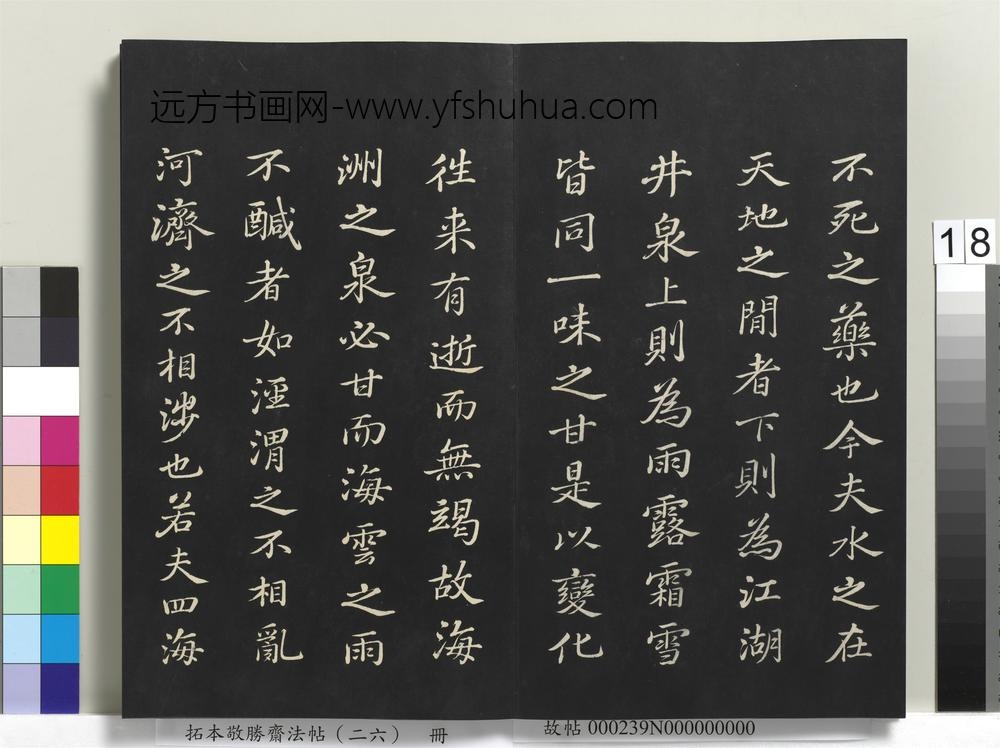 远方书画网-www.yfshuhua.com
不死之藥也今夫水之在
天地之間者下則為江湖
井泉上則為雨露霜雪
皆同一味之甘是以變化
往来有逝而無竭故海
洲之泉必甘而海雲之雨
不醎者如涇渭之不相亂
河濟之不相涉也若夫四海
18
拓本敬勝齋法帖(二六) 冊
故帖 000239N000000000